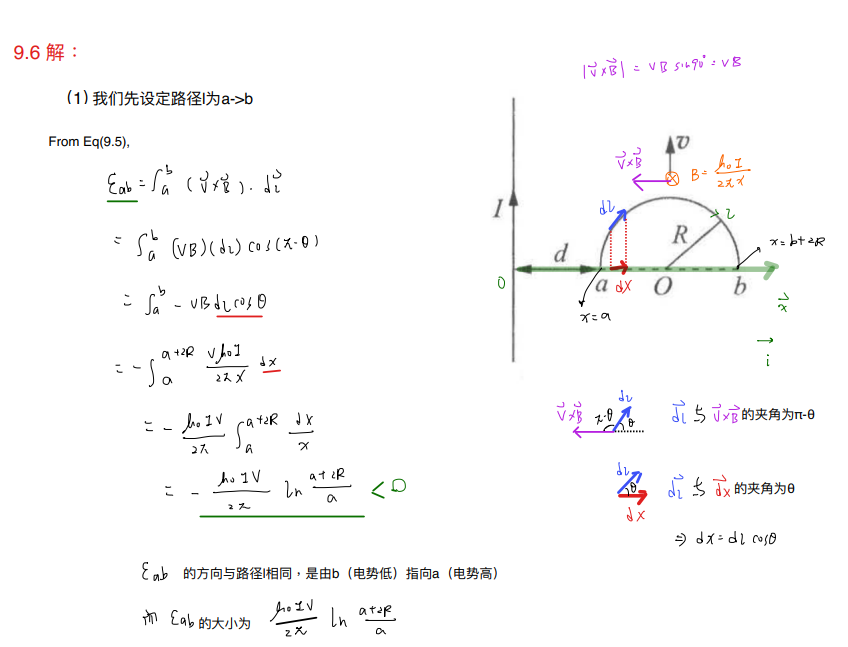 9.6 解：
|v⃗×B⃗| = vB sin90° = vB
(1) 我们先设定路径l为a->b
From Eq(9.5),
ℰab = ∫_a^b (v⃗×B⃗)·dl⃗
= ∫_a^b (vB)(dl)cos(π-θ)
= ∫_a^b -vB dl cosθ
= -∫_a^{a+2R} vμ₀I/2πx dx
= -μ₀Iv/2π ∫_a^{a+2R} dx/x
= -μ₀Iv/2π ln a+2R/a < 0
ℰab 的方向与路径l相同，是由b（电势低）指向a（电势高）
而 ℰab 的大小为 μ₀Iv/2π ln a+2R/a
v
v⃗×B⃗
B = μ₀I/2πx
dl
l
I
R
x=b+2R
d
0
a
dx
O
b
x=a
x⃗
i
v⃗×B⃗ π-θ dl θ
dl⃗ 与 v⃗×B⃗ 的夹角为π-θ
dl θ dx
dl⃗ 与 dx⃗ 的夹角为θ
⇒ dx = dl cosθ